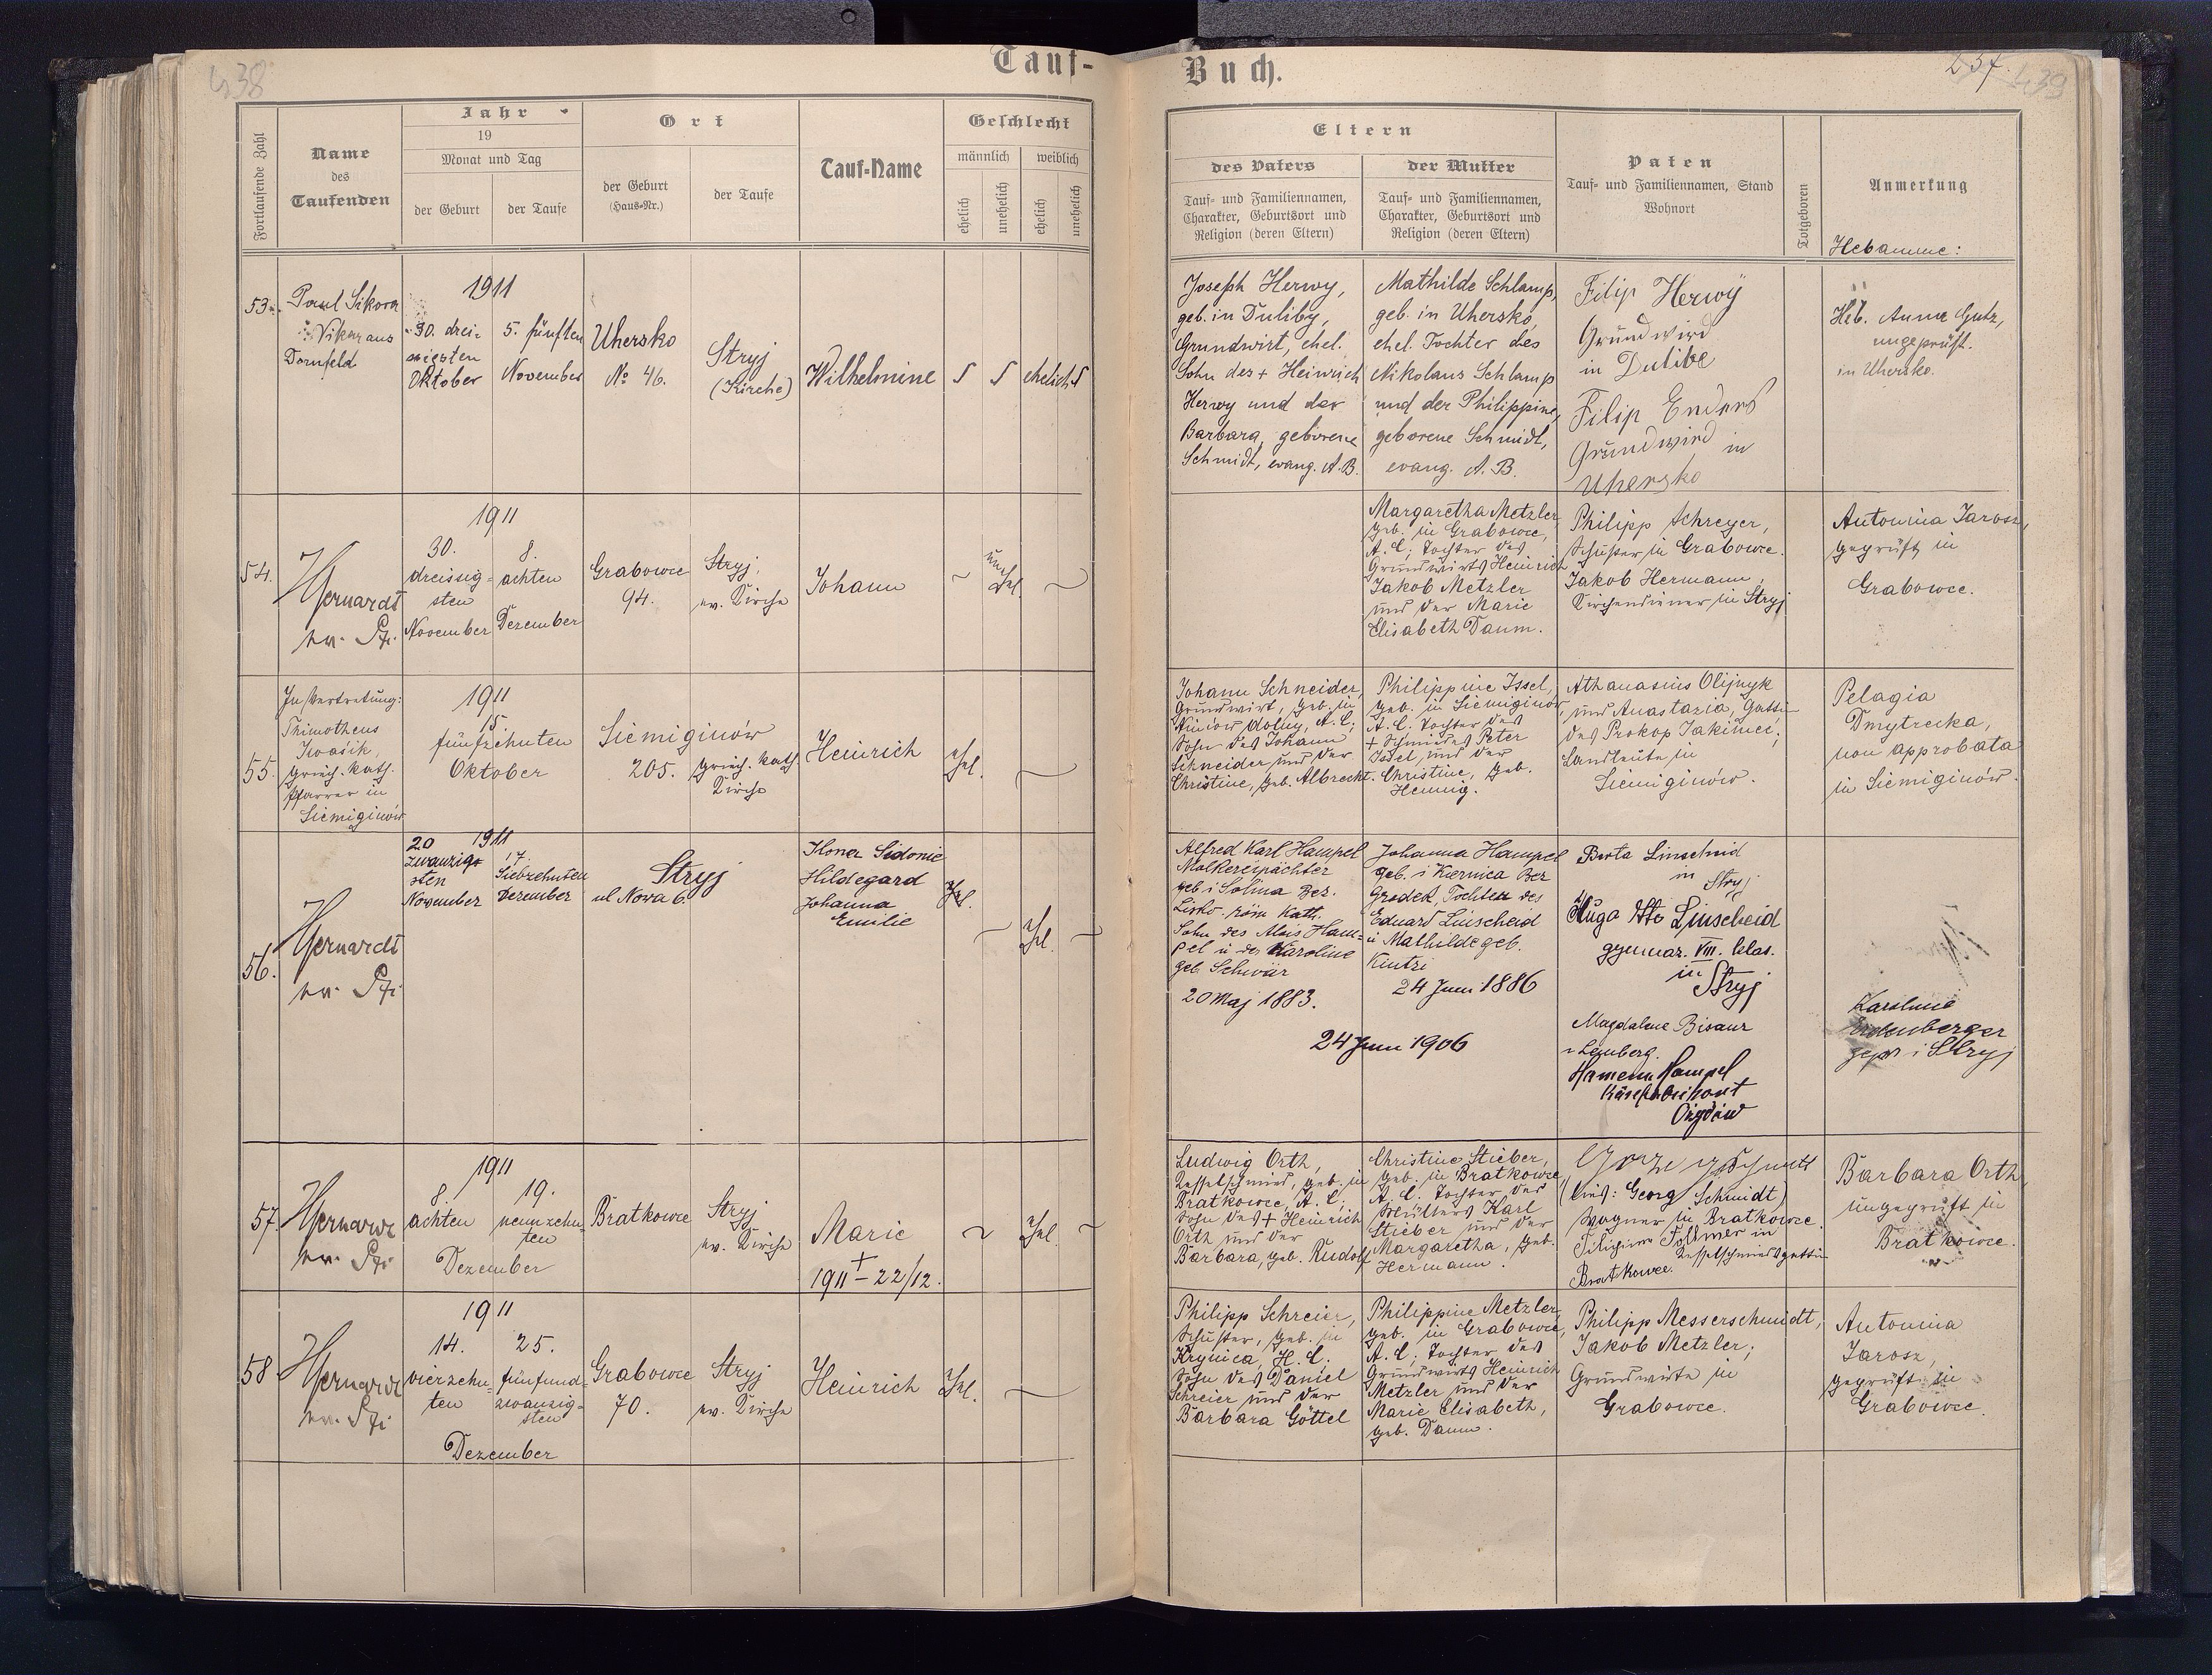 438
Tauf-
Buch.
257.
439
Fortlaufende Zahl
Name
des
Taufenden
Jahr
19
Monat und Tag
der Geburt
der Taufe
Ort
der Geburt
(Haus-Nr.)
der Taufe
Tauf-Name
Geschlecht
männlich
weiblich
ehelich
unehelich
ehelich
unehelich
Eltern
des Vaters
Tauf- und Familiennamen,
Charakter, Geburtsort und
Religion (deren Eltern)
der Mutter
Tauf- und Familiennamen,
Charakter, Geburtsort und
Religion (deren Eltern)
Paten
Tauf- und Familiennamen, Stand
Wohnort
Totgeboren
Anmerkung
Hebamme:
53.
Paul Sikora
Vikar aus
Dornfeld
1911
30. drei-
ssigsten
Oktober
5. fünften
November
Uhersko
No 46.
Stryj
(Kirche)
Wilhelmine
ehelich
Joseph Herwy,
geb. in Duliby,
Grundwirt, ehel.
Sohn des + Heinrich
Herwy und der
Barbara, geborene
Schmidt, evang. A.B.
Mathilde Schlamp,
geb. in Uhersko,
ehel. Tochter des
Nikolaus Schlamp
und der Philippine,
geborene Schmidt,
evang. A. B.
Filip Herwÿ
Grundwird
in Dulibe
Filip Enders
Grundwird in
Uhersko
Heb. Anna Gutz,
ungeprüft.
in Uhersko.
54.
1911
30.
dreissig-
sten
November
8.
achten
Dezember
Grabowce
94.
Stryj,
ev. Kirche
Johann
un
ehel.
Margaretha Metzler,
geb. in Grabowce,
A. C., Tochter des
Grundwirts Heinrich
Jakob Metzler
und der Marie
Elisabeth Daum.
Philipp Schreyer,
Schuster in Grabowce.
Jakob Hermann,
Kirchendiener in Stryj
Antonina Jarosz,
geprüft in
Grabowce.
55.
In Vertretung:
Thimotheus
Iwasik,
griech. kath.
Pfarrer in
Siemiginów
1911
15.
fünfzehnten
Oktober
Siemiginów
205.
griech. kath.
Kirche
Heinrich
ehel.
Johann Schneider,
Grundwirt, geb. in
dolny, A. C.,
Sohn des Johann
Schneider und der
Christine, geb. Albrecht.
Philippine Issel,
geb. in Siemiginów,
A. C. Tochter des
+ Schmiedes Peter
Issel, und der
Christine, geb.
Hennig.
Athanasius Olijnyk
und Anastazia, Gattin
des Prokop Jakimci;
Landleute in
Siemiginów.
Pelagia
Dmytrecka,
non approbata
in Siemiginów.
56.
20 1911
zwanzig-
sten
November
17.
Siebzehnten
Dezember
Stryj
ul Nowa 6.
Ilona Sidonie
Hildegard
Johanna
Emilie
ehel.
Alfred Karl Hampel
Molkereipächter
geb i Solina Bez.
Lisko röm Kath.
Sohn des Alois Ham-
pel u der Karoline
geb. Schwär
20 Maj 1883.
Johanna Hampel
geb. i Kiernica Bez
Grodek, Tochter des
Eduard Linscheid
u Mathilde geb.
Kintzi
24 Juni 1886
24 Juni 1906
Berta Linscheid
in Stryj
Hugo Otto Linscheid
gymnaz. VIII. Clas.
in
Stryj
Magdalene Bisanz
Lemberg.
Hampel
Karoline
gepr i Stryj
57.
1911
8.
achten
19.
neunzehn-
ten
Dezember
Bratkowce
Stryj
ev. Kirche
Marie
+
1911 – 22/12.
ehel.
Ludwig Orth,
Kesselschmied, geb. in
Bratkowce, A. C.,
Sohn des + Heinrich
Orth und der
Barbara, geb. Rudolf
Christine Stieber,
geb. in Bratkowce,
A. C. Tochter des
Müllers Karl
Stieber und der
Margaretha, geb.
Hermann.
(lies: Georg Schmidt)
Wagner in Bratkowce.
Kesselschmiedsgattin
Bratkowce.
Barbara Orth,
ungeprüft in
Bratkowce.
58
1911
14.
vierzehn-
ten
25.
fünfund-
zwanzig-
sten
Dezember
Grabowce
70.
Stryj
ev. Kirche
Heinrich
ehel.
Philipp Schreier,
Schuster, geb. in
Krynica, H. C.
Sohn des Daniel
Schreier und der
Barbara Göttel
Philippine Metzler,
geb. in Grabowce,
A. C., Tochter des
Grundwirts Heinrich
Metzler und der
Marie Elisabeth,
geb. Daum.
Philipp Messerschmidt,
Jakob Metzler;
Grundwirte in
Grabowce.
Antonina
Jarosz,
geprüft in
Grabowce.